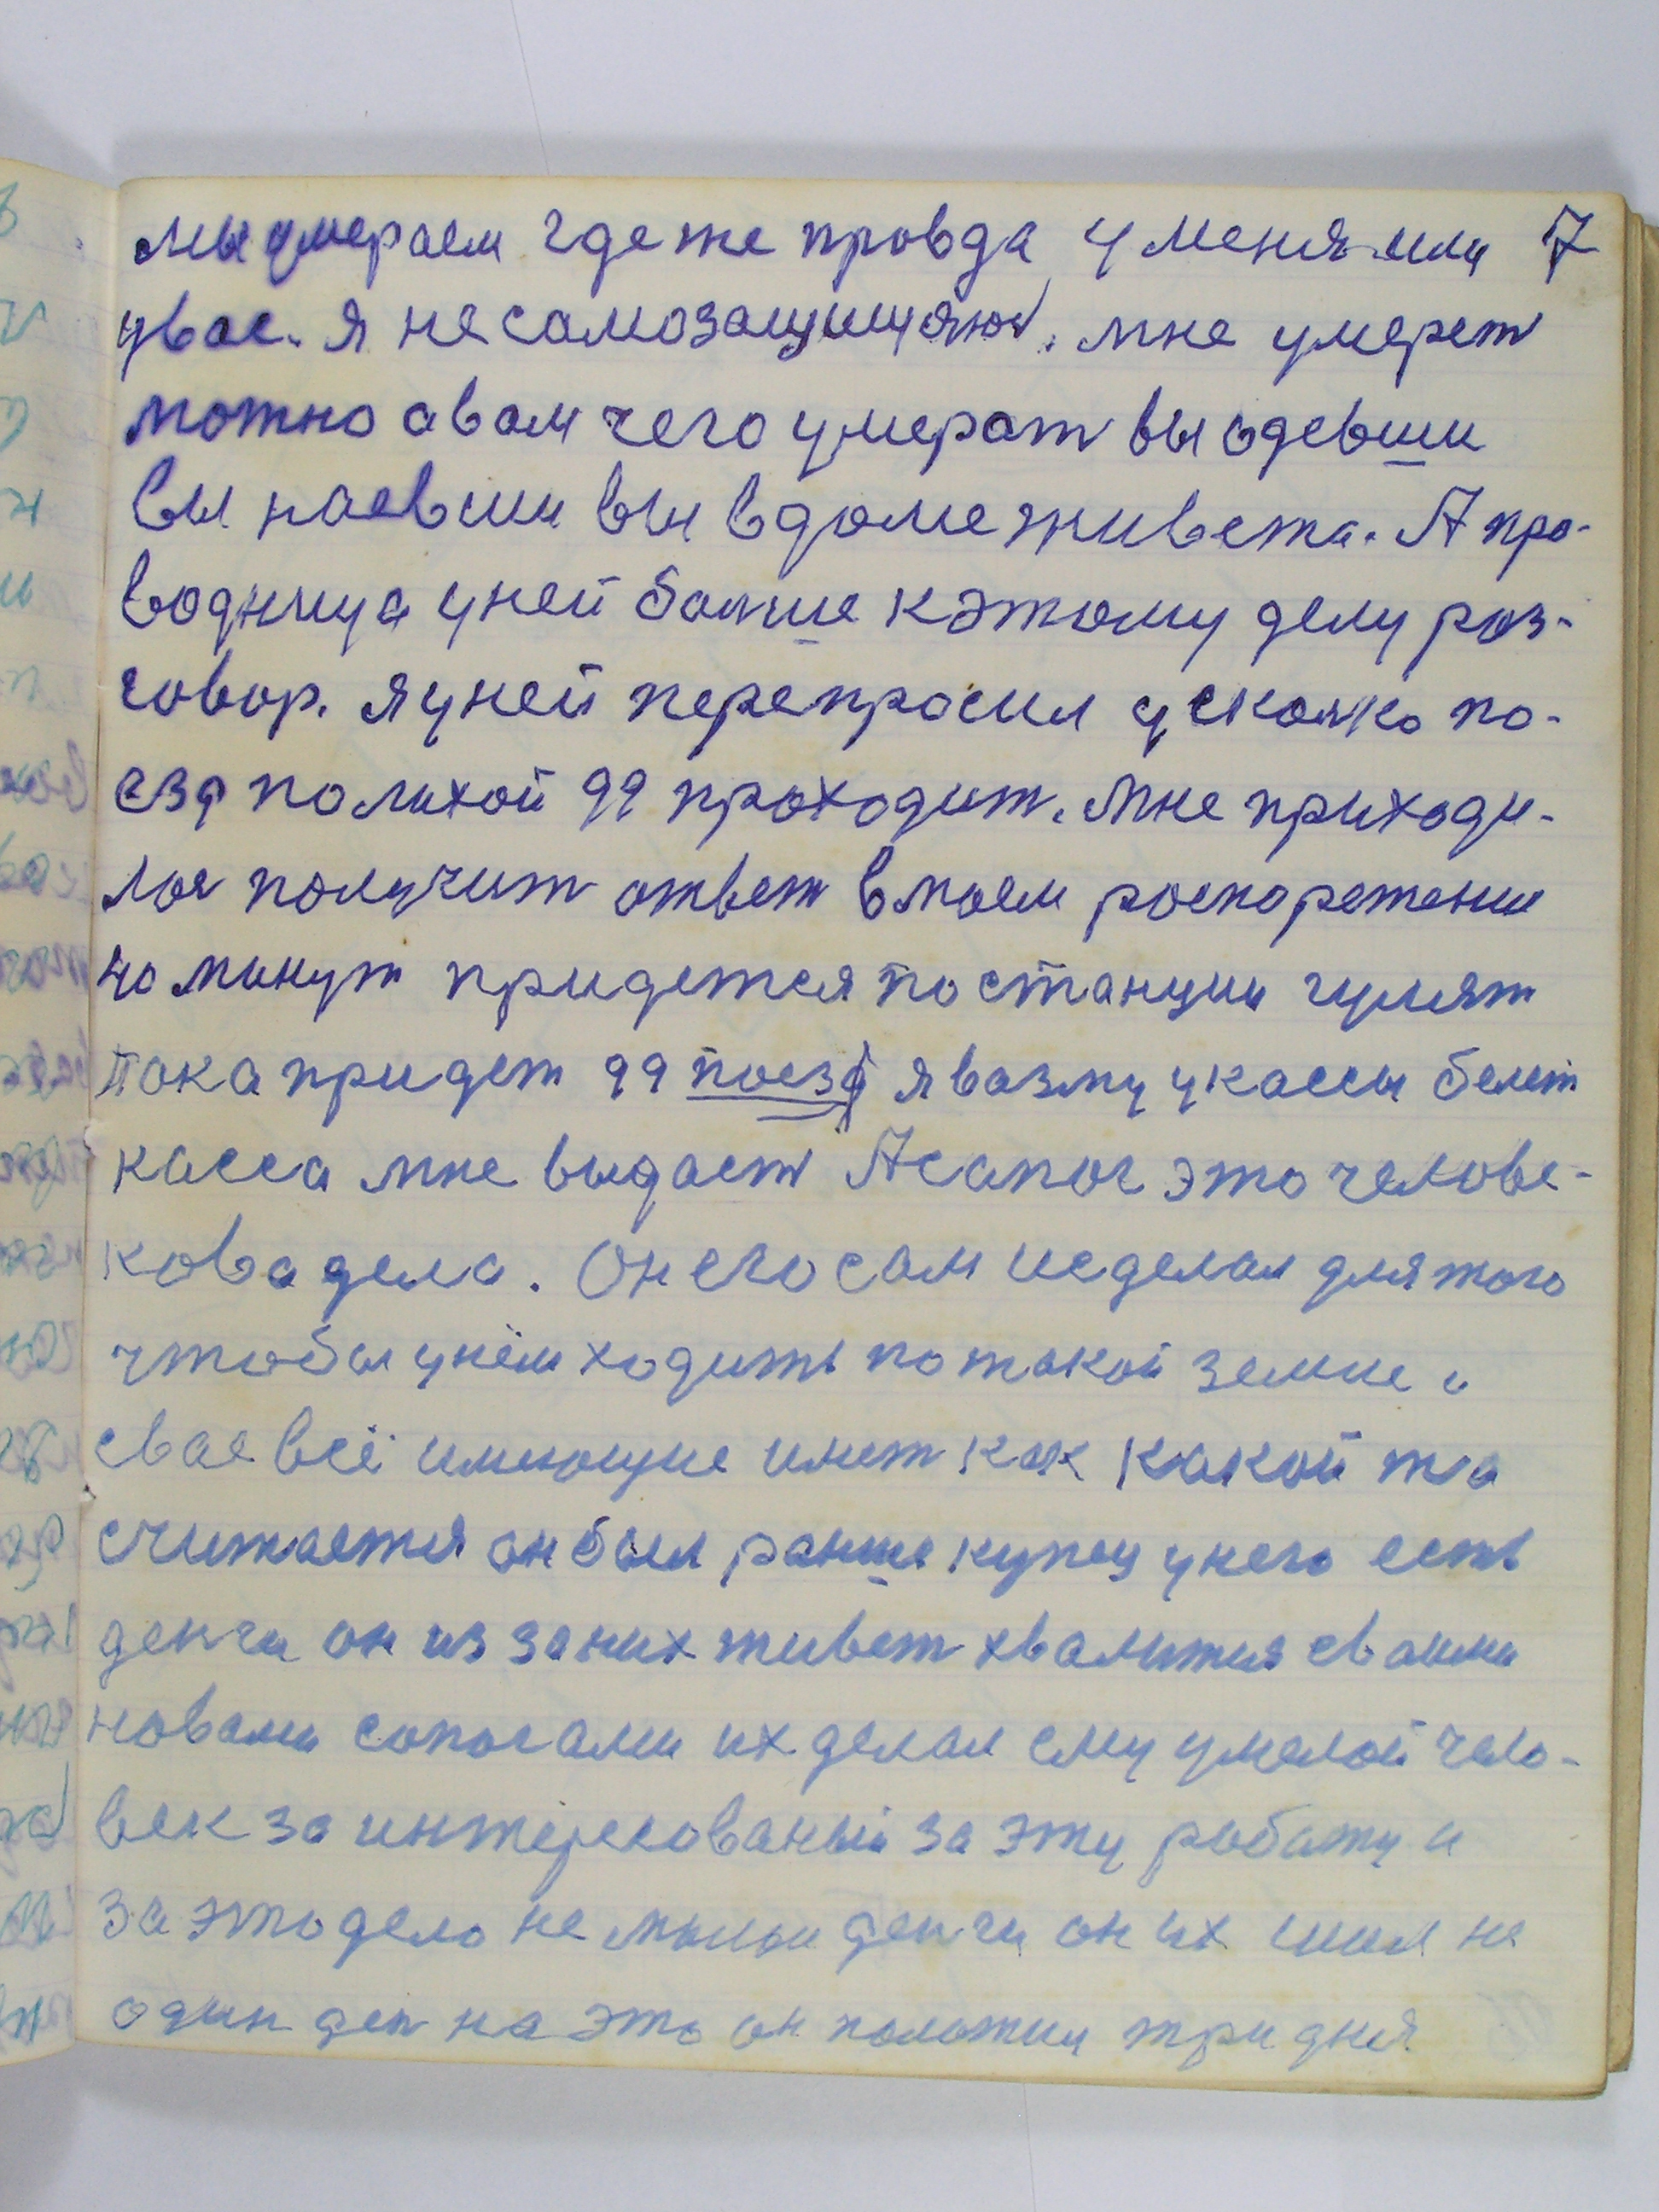 мы умераем где же провда у меня или 7
увас. я не самозащищаюсь. мне умерет
можно а вам чего умерат вы одевши
вы наевши вы вдоме живета. А про-
водница уней болше кэтому делу роз-
говор. я уней перепросил усколко по-
езд полихой 99 проходит. Мне приходи-
лос получит ответ вмоем роспорежении
40 минут придется по станции гулят
пока придет 99 поезд я возму укассы белет
касса мне выдаст А сапог это челове-
кова дела. Он его сам исделал для того
чтобы унём ходить по такой земле и
свае всё имеющие имет как какой та
считается он был ранше купец унего есть
денги он из за них живет хвалится сваими
новами сопогами их делал ему умелой чело-
век за интересованый за эту работу и
за это дело не малыи денги он их шил не
один ден на это он положил три дня